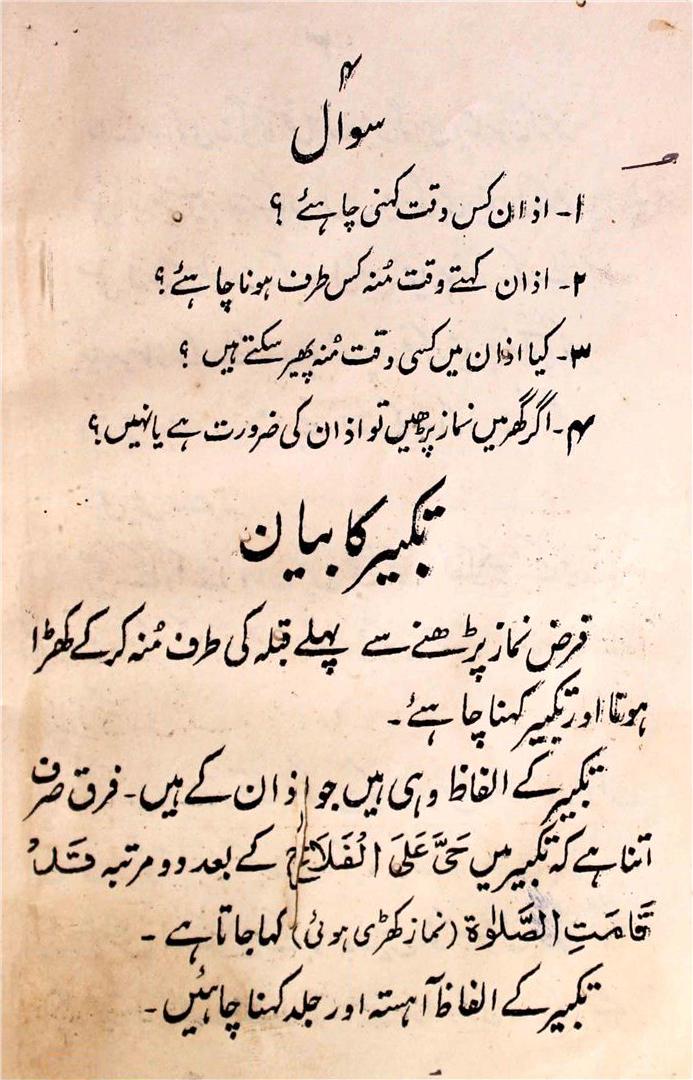 ۴
سوال
۱۔ اذان کس وقت کہنی چاہئے ؟
۲۔ اذان کہتے وقت مُنہ کس طرف ہونا چاہئے؟
۳۔ کیا اذان میں کسی وقت مُنہ پھیر سکتے ہیں ؟
۴۔ اگر گھر میں نماز پڑھیں تو اذان کی ضرورت ہے یا نہیں؟
تکبیر کا بیان
فرض نماز پڑھنے سے پہلے قبلہ کی طرف مُنہ کر کے کھڑا
ہونا اور تکبیر کہنا چاہئے۔
تکبیر کے الفاظ وہی ہیں جو اذان کے ہیں۔ فرق صرف
اتنا ہے کہ تکبیر میں حَیَّ عَلَی الْفَلَاحِ کے بعد دو مرتبہ قَدْ
قَامَتِ الصَّلوٰۃ (نماز کھڑی ہوئی) کہا جاتا ہے ۔
تکبیر کے الفاظ آہستہ اور جلد کہنا چاہئیں۔